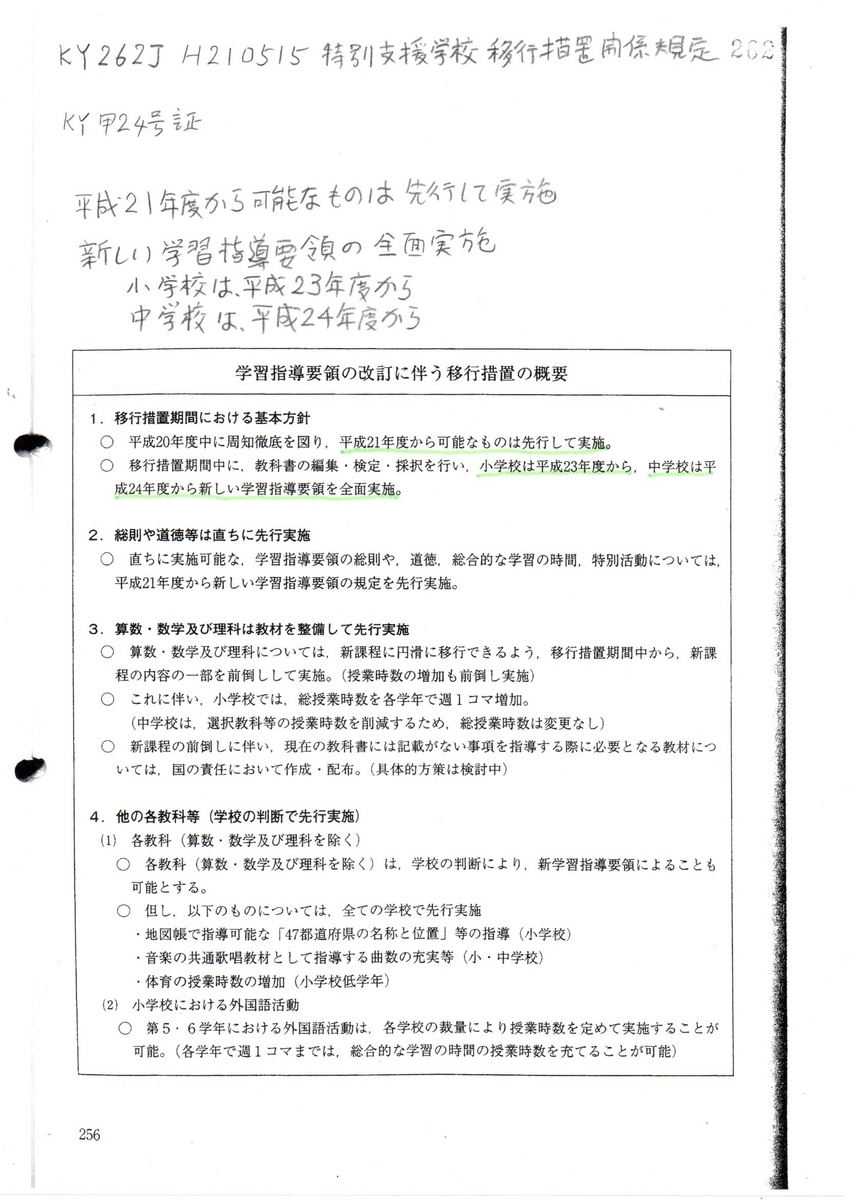 KY262J H210515 特別支援学校 移行措置関係規定 262
KY甲24号証
平成21年度から可能なものは先行して実施
新しい学習指導要領の全面実施
小学校は、平成23年度から
中学校は、平成24年度から
学習指導要領の改訂に伴う移行措置の概要
1．移行措置期間における基本方針
○ 平成20年度中に周知徹底を図り，平成21年度から可能なものは先行して実施。
○ 移行措置期間中に，教科書の編集・検定・採択を行い，小学校は平成23年度から，中学校は平
成24年度から新しい学習指導要領を全面実施。
2．総則や道徳等は直ちに先行実施
○ 直ちに実施可能な，学習指導要領の総則や，道徳，総合的な学習の時間，特別活動については，
平成21年度から新しい学習指導要領の規定を先行実施。
3．算数・数学及び理科は教材を整備して先行実施
○ 算数・数学及び理科については，新課程に円滑に移行できるよう，移行措置期間中から，新課
程の内容の一部を前倒しして実施。（授業時数の増加も前倒し実施）
○ これに伴い，小学校では，総授業時数を各学年で週１コマ増加。
（中学校は，選択教科等の授業時数を削減するため，総授業時数は変更なし）
○ 新課程の前倒しに伴い，現在の教科書には記載がない事項を指導する際に必要となる教材につ
いては，国の責任において作成・配布。（具体的方策は検討中）
4．他の各教科等（学校の判断で先行実施）
(1) 各教科（算数・数学及び理科を除く）
○ 各教科（算数・数学及び理科を除く）は，学校の判断により，新学習指導要領によることも
可能とする。
○ 但し，以下のものについては，全ての学校で先行実施
・地図帳で指導可能な「47都道府県の名称と位置」等の指導（小学校）
・音楽の共通歌唱教材として指導する曲数の充実等（小・中学校）
・体育の授業時数の増加（小学校低学年）
(2) 小学校における外国語活動
○ 第５・６学年における外国語活動は，各学校の裁量により授業時数を定めて実施することが
可能。（各学年で週１コマまでは，総合的な学習の時間の授業時数を充てることが可能）
256